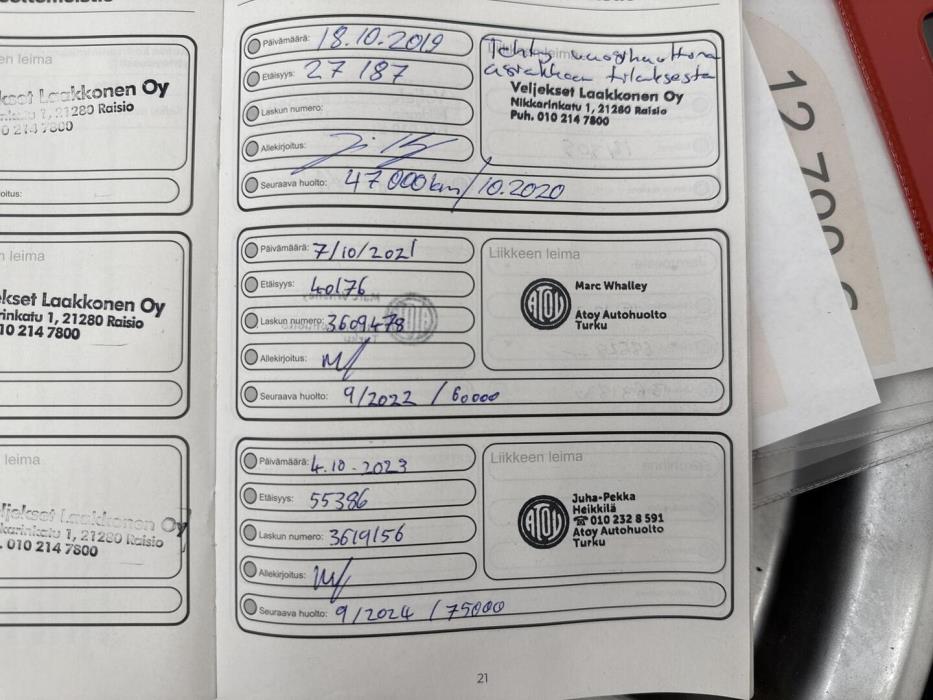 en leima
kset Laakkonen Oy
1, 21280 Raisio
0 214 7800
oitus:
n leima
kset Laakkonen Oy
rinkatu 1, 21280 Raisio
10 214 7800
leima
ljekset Laakkonen Oy
karinkatu 1, 21280 Raisio
. 010 214 7800
Päivämäärä: 18.10.2019
Etäisyys: 27 187
Laskun numero:
Allekirjoitus:
Seuraava huolto: 47 000 km / 10.2020
Tehty vuosihuolto
asiakkaan tilauksesta
Veljekset Laakkonen Oy
Nikkarinkatu 1, 21280 Raisio
Puh. 010 214 7800
Päivämäärä: 7/10/2021
Etäisyys: 40176
Laskun numero: 3609478
Allekirjoitus:
Seuraava huolto: 9/2022 / 60000
Liikkeen leima
ATOY
Marc Whalley
Atoy Autohuolto
Turku
Päivämäärä: 4.10.2023
Etäisyys: 55386
Laskun numero: 3619156
Allekirjoitus:
Seuraava huolto: 9/2024 / 75000
Liikkeen leima
ATOY
Juha-Pekka
Heikkilä
☎ 010 232 8 591
Atoy Autohuolto
Turku
21